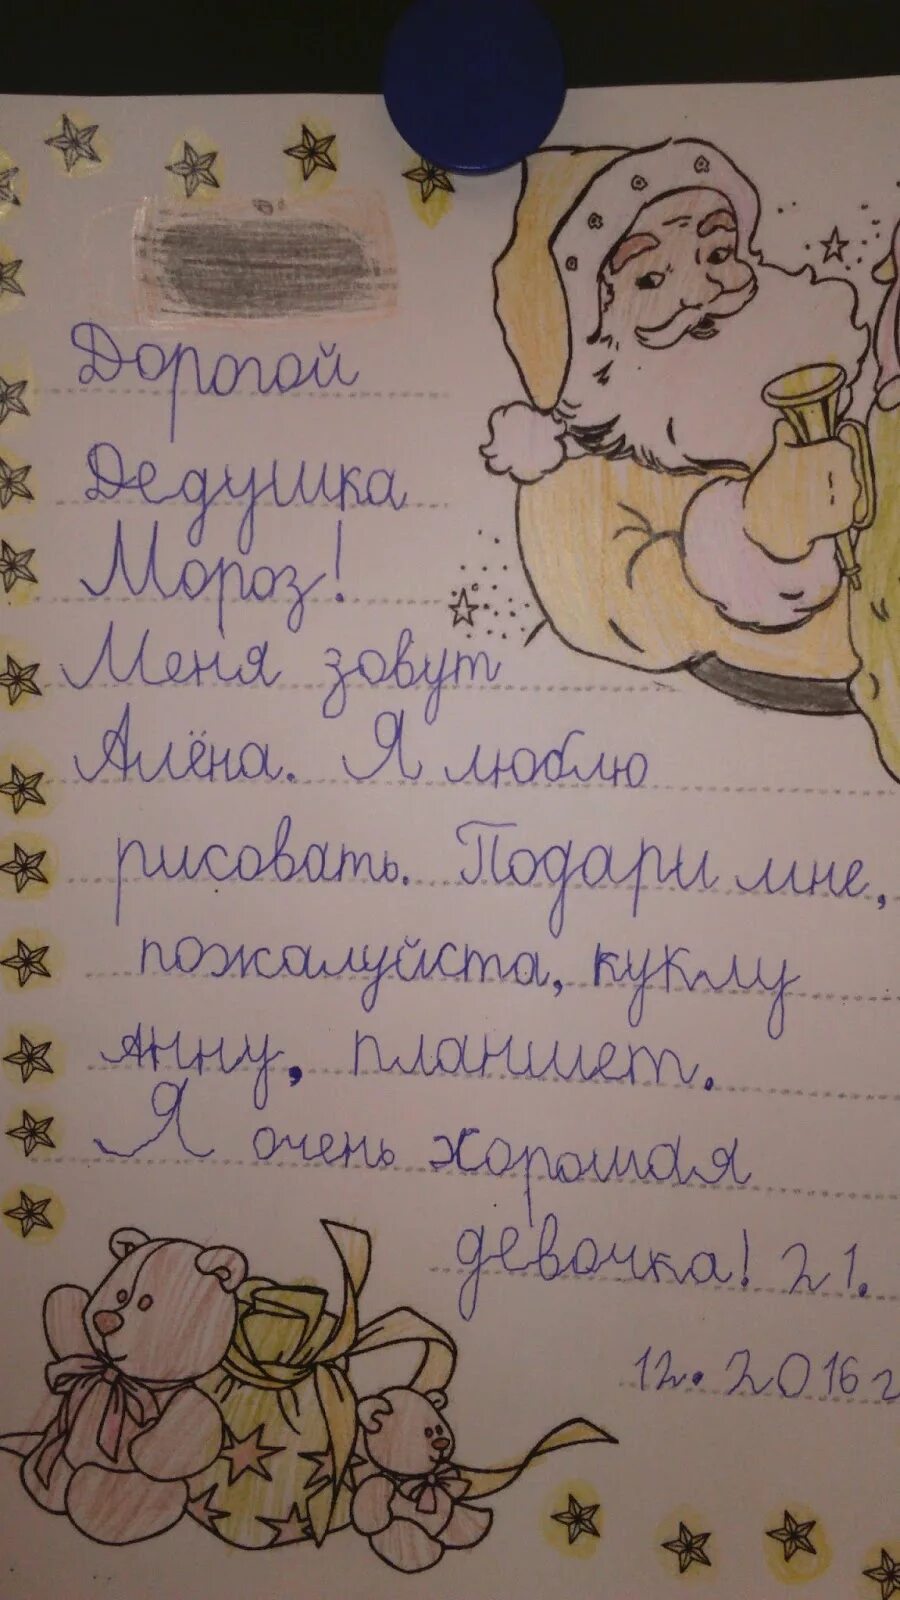 Дорогой
Дедушка
Мороз!
Меня зовут
Алёна. Я люблю
рисовать. Подари мне,
пожалуйста, куклу
Анну, планшет.
Я очень хорошая
девочка! 21.
12. 2016 г